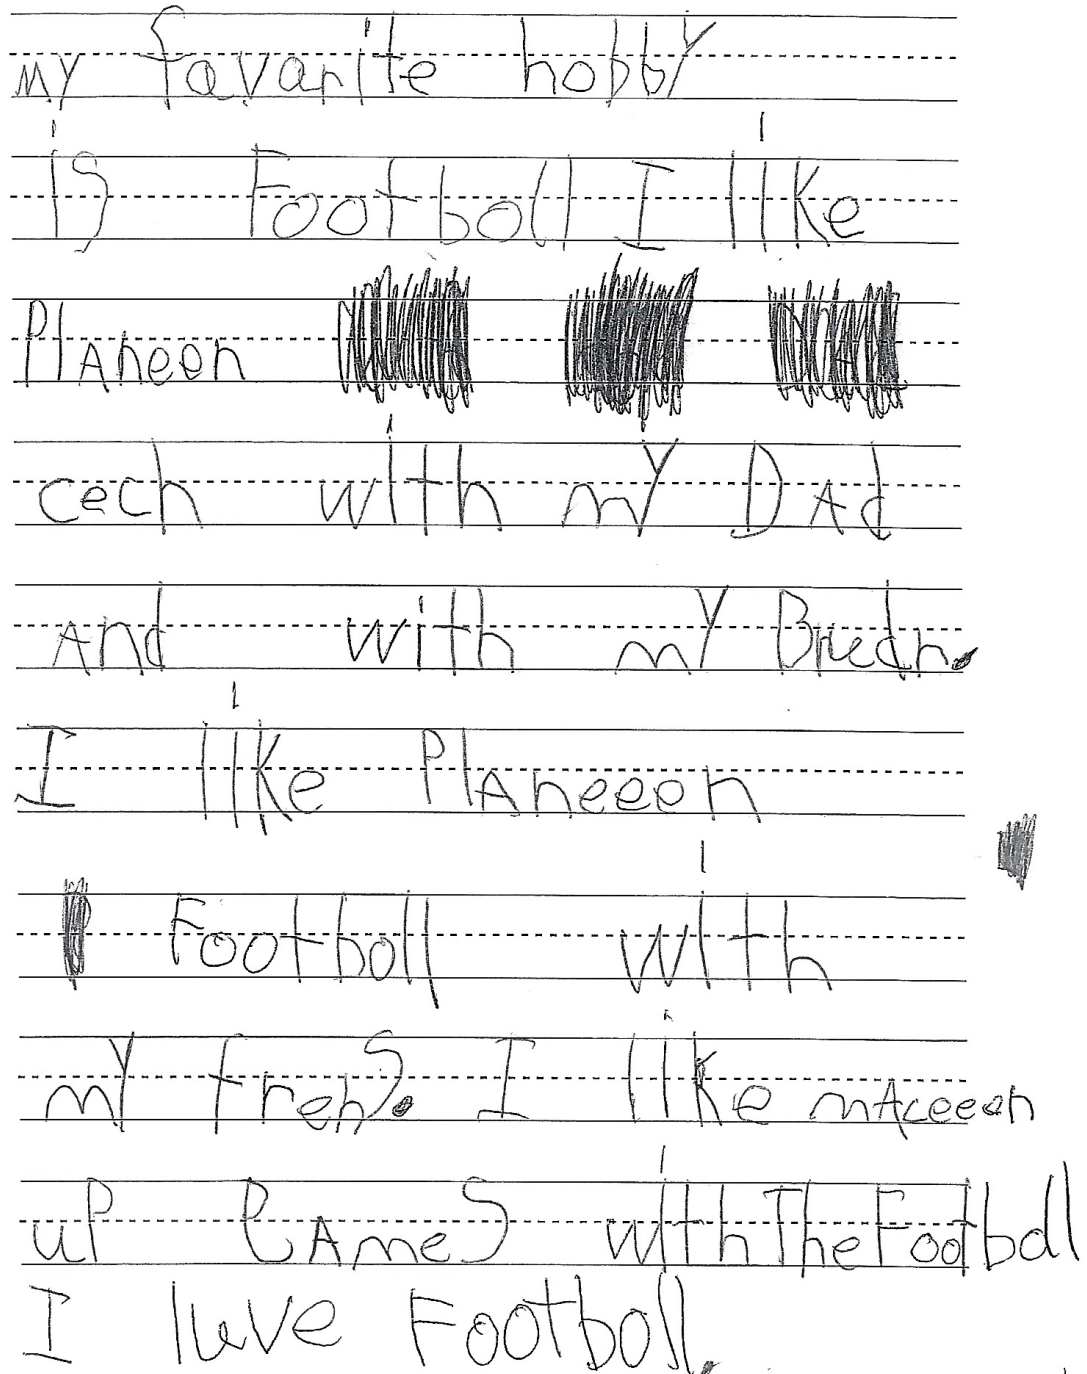 my favarite hobby
is Footboll I like
PlAneen
cech with mY DAd
And with mY Bredr.
I like PlAneeen
Footboll with
mY frenS. I like mAceeen
uP GAmeS withTheFootboll
I luve Footboll.